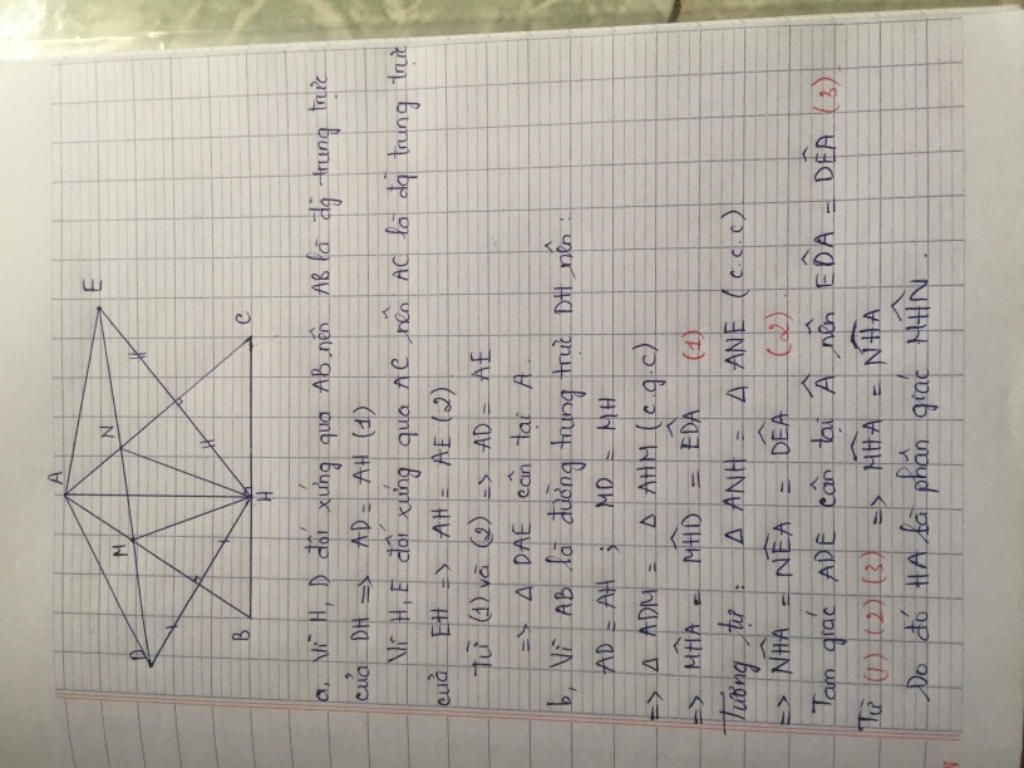 A
E
M
N
D
B
H
C
a, Vì H, D đối xứng qua AB, nên AB là đg trung trực
của DH => AD = AH (1)
Vì H, E đối xứng qua AC, nên AC là đg trung trực
của EH => AH = AE (2)
Từ (1) và (2) => AD = AE
=> Δ DAE cân tại A.
b, Vì AB là đường trung trực DH, nên:
AD = AH ; MD = MH
=> Δ ADM = Δ AHM (c.g.c)
=> MĤA = MĤD = ED̂A (1)
Tương tự : Δ ANH = Δ ANE (c.c.c)
=> NĤA = NÊA = DÊA (2)
Tam giác ADE cân tại Â, nên ED̂A = DÊA (3).
Từ (1) (2) (3) => MĤA = NĤA
Do đó HA là phân giác MĤN.